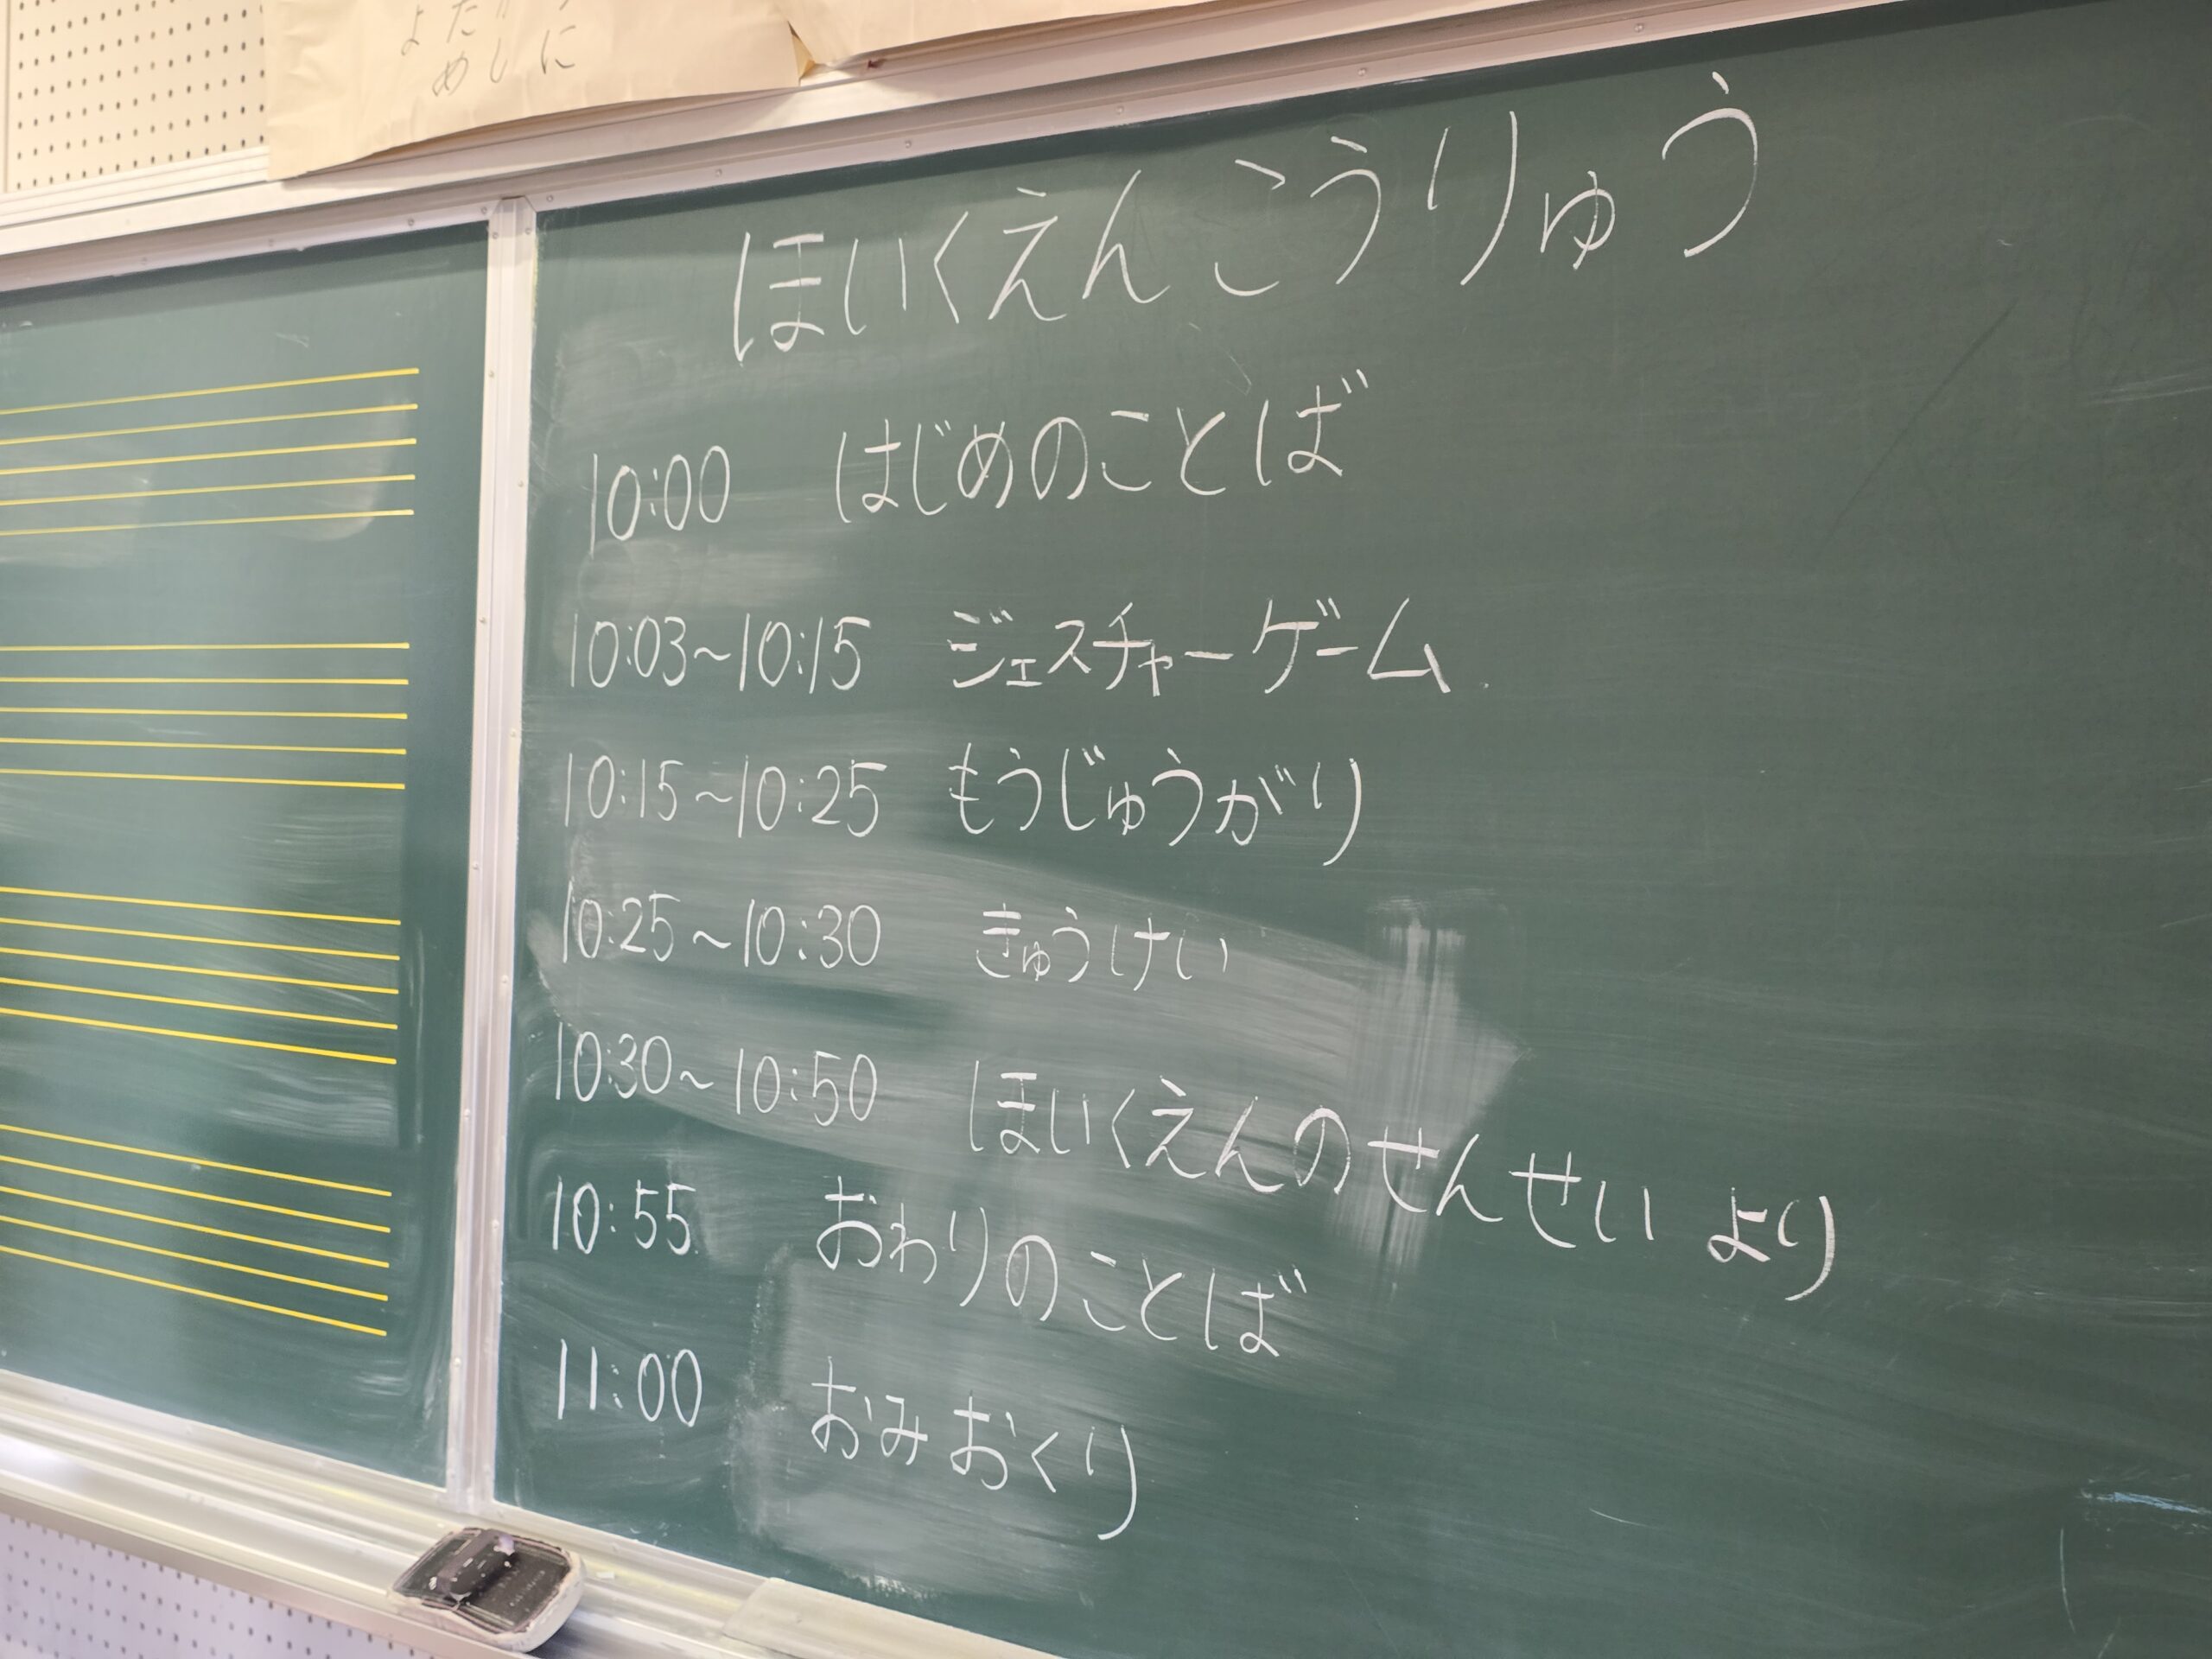 めしに
ほいくえんこうりゅう
10:00 はじめのことば
10:03~10:15 ジェスチャーゲーム
10:15~10:25 もうじゅうがり
10:25~10:30 きゅうけい
10:30~10:50 ほいくえんのせんせいより
10:55 おわりのことば
11:00 おみおくり